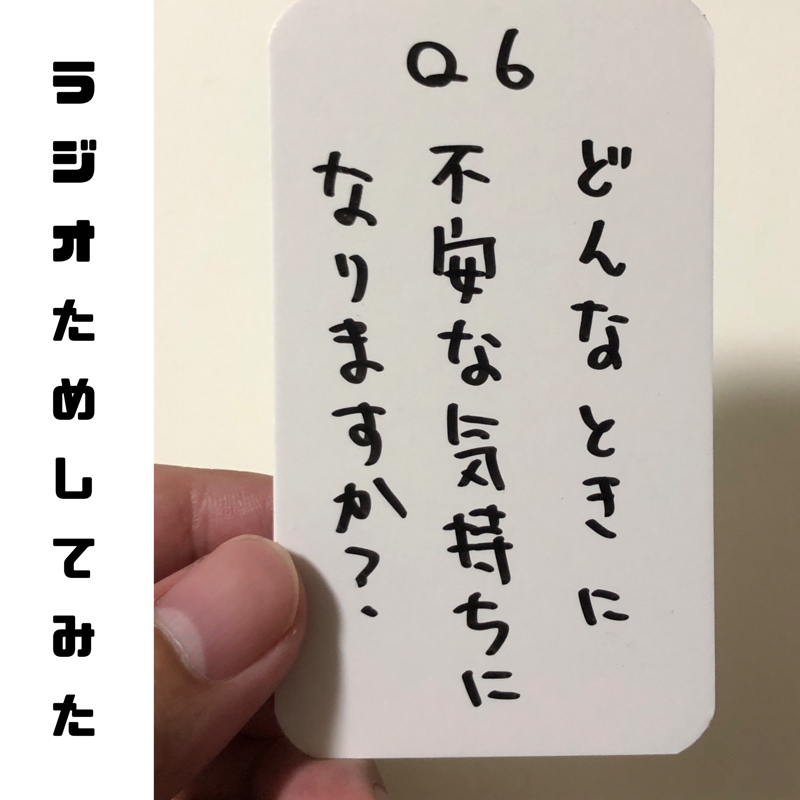 ラジオためしてみた
Q6
どんなときに
不安な気持ちに
なりますか?